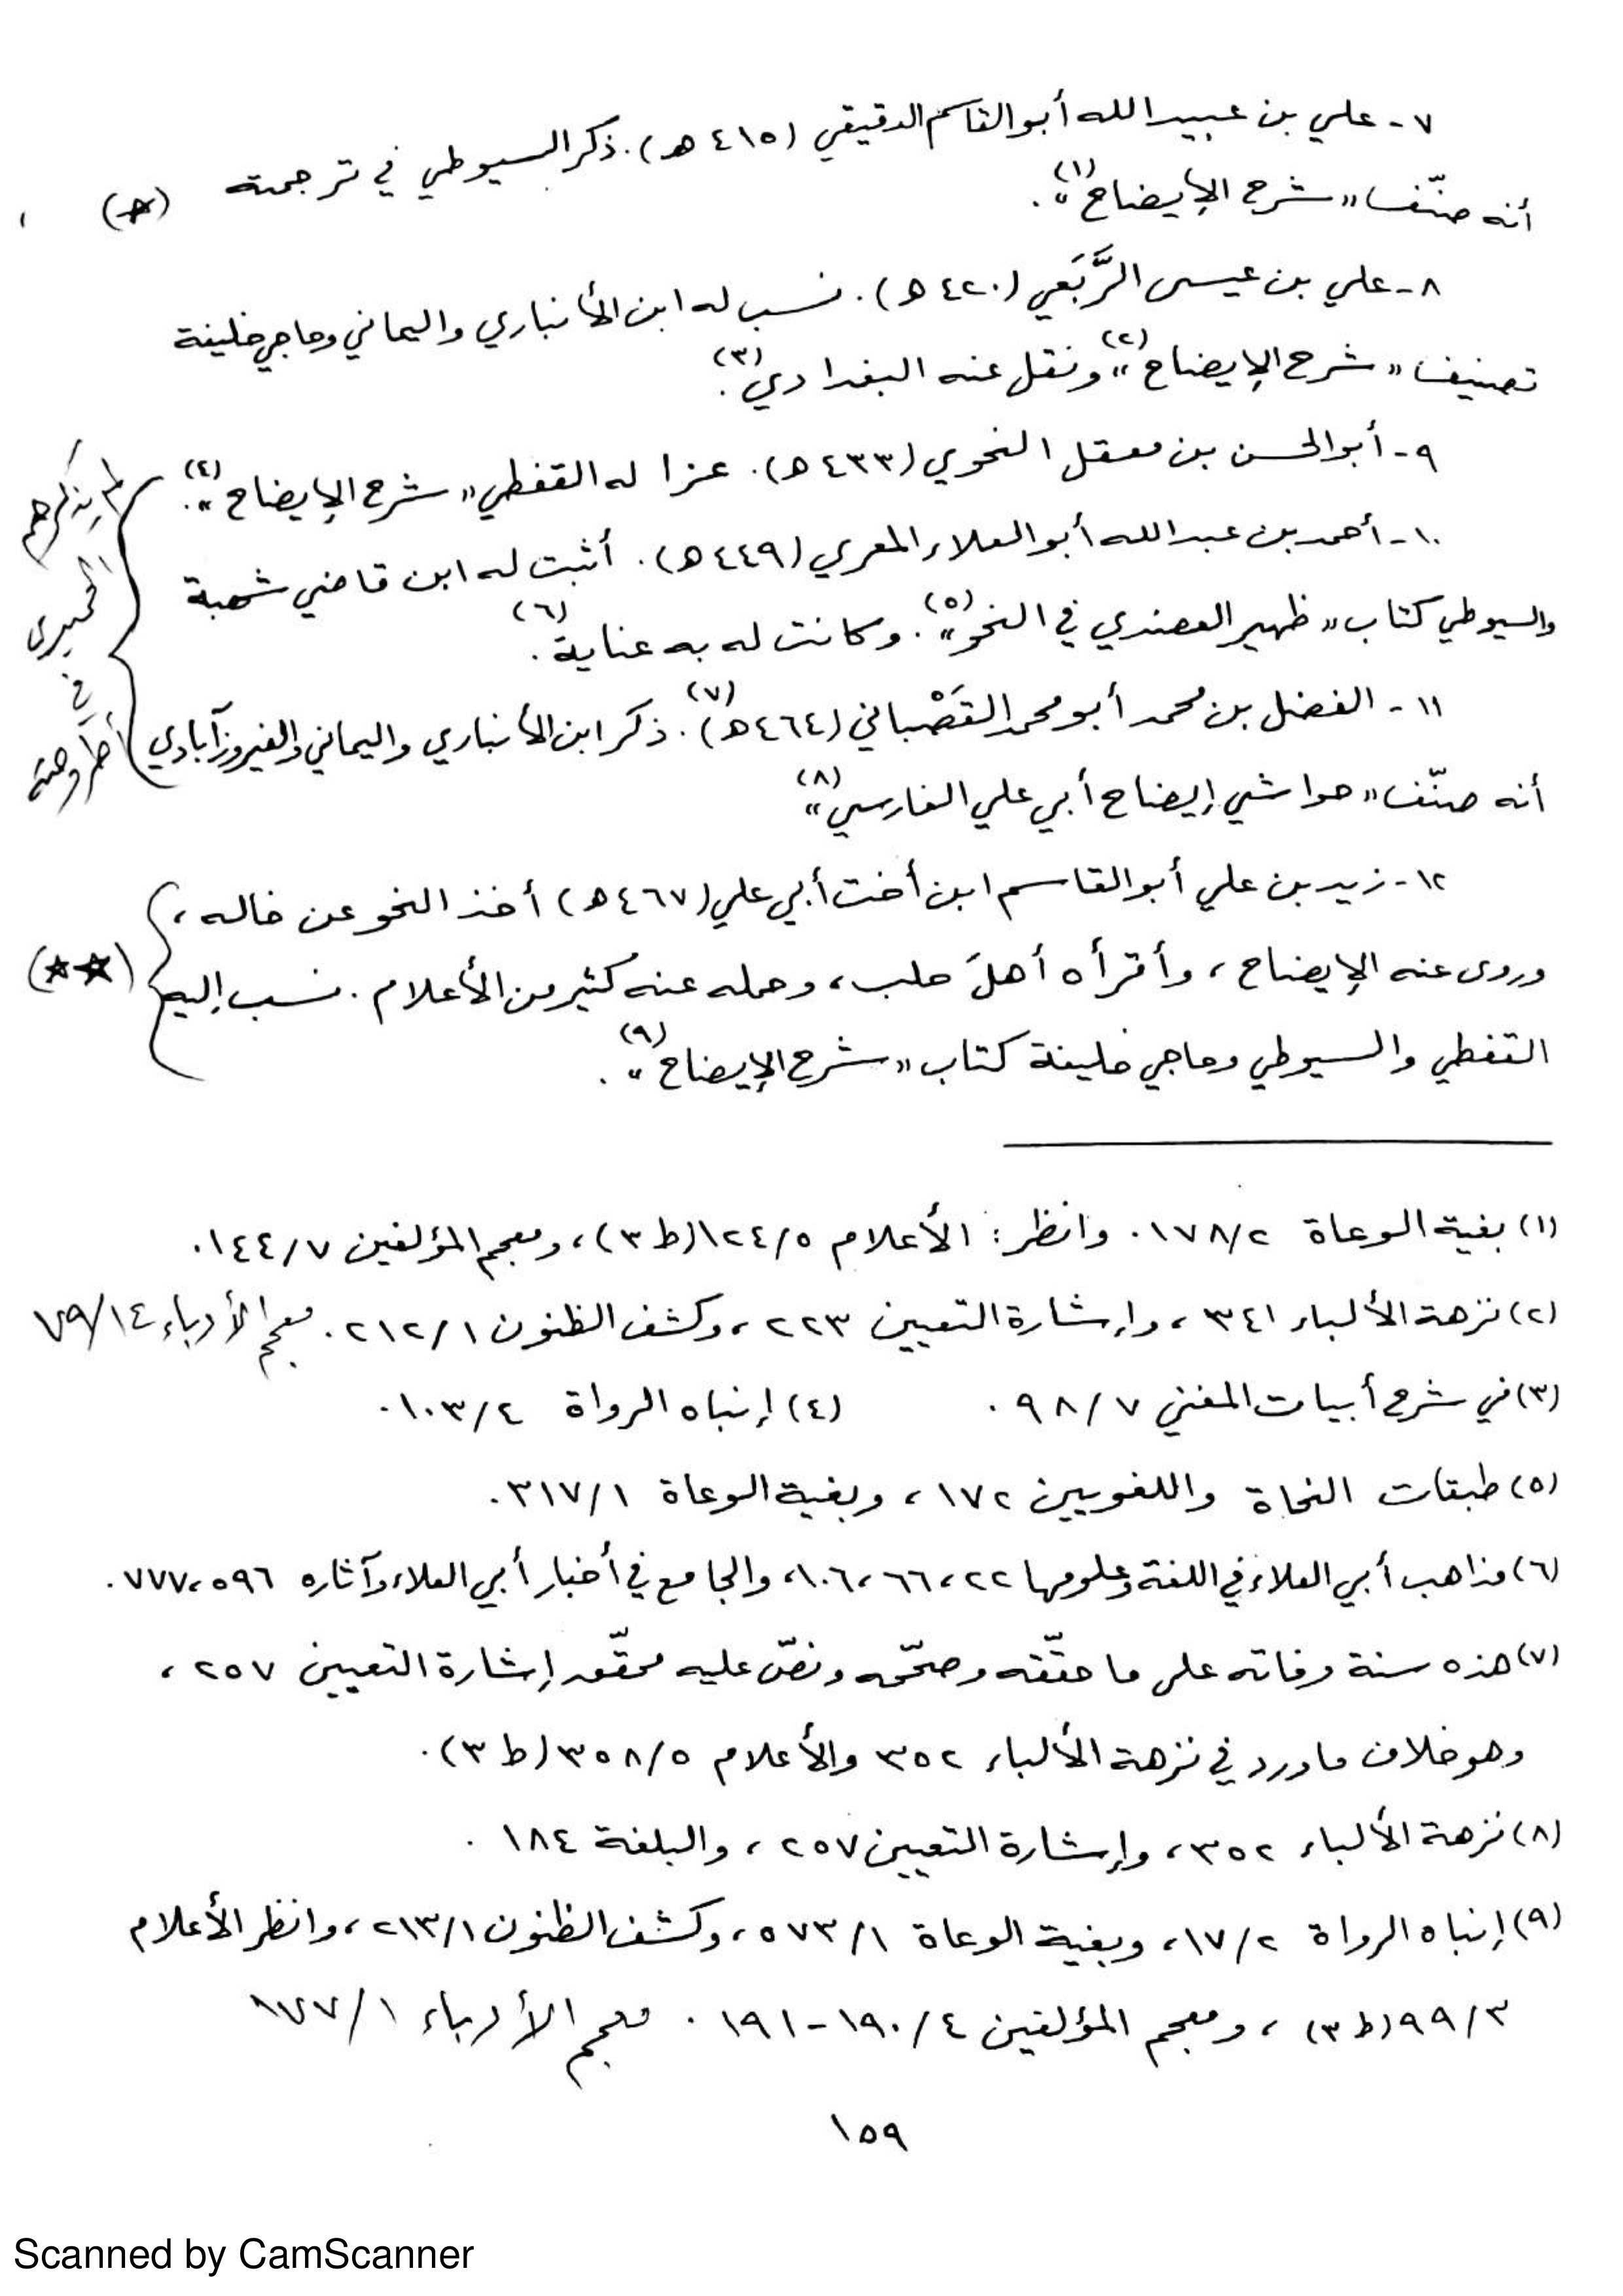 ٧- علي بن عبيد الله أبو القاسم الدقيقي (٤١٥ هـ). ذكر السيوطي في ترجمته
أنه صنّف «شرح الإيضاح»(١). (☆)
٨- علي بن عيسى الرَّبَعي (٤٢٠ هـ). نسب له ابن الأنباري واليماني وحاجي خليفة
تصنيف «شرح الإيضاح»(٢) ونقل عنه البغدادي(٣).
٩- أبو الحسن بن معقل النحوي (٤٣٣ هـ). عزا له القفطي «شرح الإيضاح»(٤).
١٠- أحمد بن عبد الله أبو العلاء المعري (٤٤٩ هـ). أثبت له ابن قاضي شهبة
والسيوطي كتاب «ظهير العضدي في النحو»(٥). وكانت له به عناية(٦).
١١- الفضل بن محمد أبو محمد القَصْباني (٤٦٤ هـ)(٧). ذكر ابن الأنباري واليماني والفيروزآبادي
أنه صنّف «حواشي إيضاح أبي علي الفارسي»(٨)
لم يذكرهم
في
أطروحته
١٢- زيد بن علي أبو القاسم ابن أخت أبي علي (٤٦٧ هـ) أخذ النحو عن خاله،
وروى عنه الإيضاح، وأقرأه أهلَ حلب، وحمله عنه كثير من الأعلام. نسب إليه (☆☆)
القفطي والسيوطي وحاجي خليفة كتاب «شرح الإيضاح»(٩).
(١) بغية الوعاة ١٧٨/٢. وانظر: الأعلام ١٢٤/٥ (ط ٣)، ومعجم المؤلفين ١٤٤/٧.
(٢) نزهة الألباء ٣٤١، وإشارة التعيين ٢٢٣، وكشف الظنون ٢١٢/١. معجم الأدباء ٧٩/١٤
(٣) في شرح أبيات المغني ٩٨/٧. (٤) إنباه الرواة ١٠٣/٤.
(٥) طبقات النحاة واللغويين ١٧٢، وبغية الوعاة ٣١٧/١.
(٦) مذاهب أبي العلاء في اللغة وعلومها ٢٢، ٦٦، ١٠٦، والجامع في أخبار أبي العلاء وآثاره ٥٩٦، ٧٧٧.
(٧) هذه سنة وفاته على ما حقّقه وصحّحه ونصّ عليه محقّق إشارة التعيين ٢٥٧،
وهو خلاف ما ورد في نزهة الألباء ٣٥٢ والأعلام ٣٥٨/٥ (ط ٣).
(٨) نزهة الألباء ٣٥٢، وإشارة التعيين ٢٥٧، والبلغة ١٨٤.
(٩) إنباه الرواة ١٧/٢، وبغية الوعاة ٥٧٣/١، وكشف الظنون ٢١٣/١، وانظر الأعلام
٩٩/٣ (ط ٣)، ومعجم المؤلفين ١٩٠/٤-١٩١. معجم الأدباء
١٥٩
Scanned by CamScanner